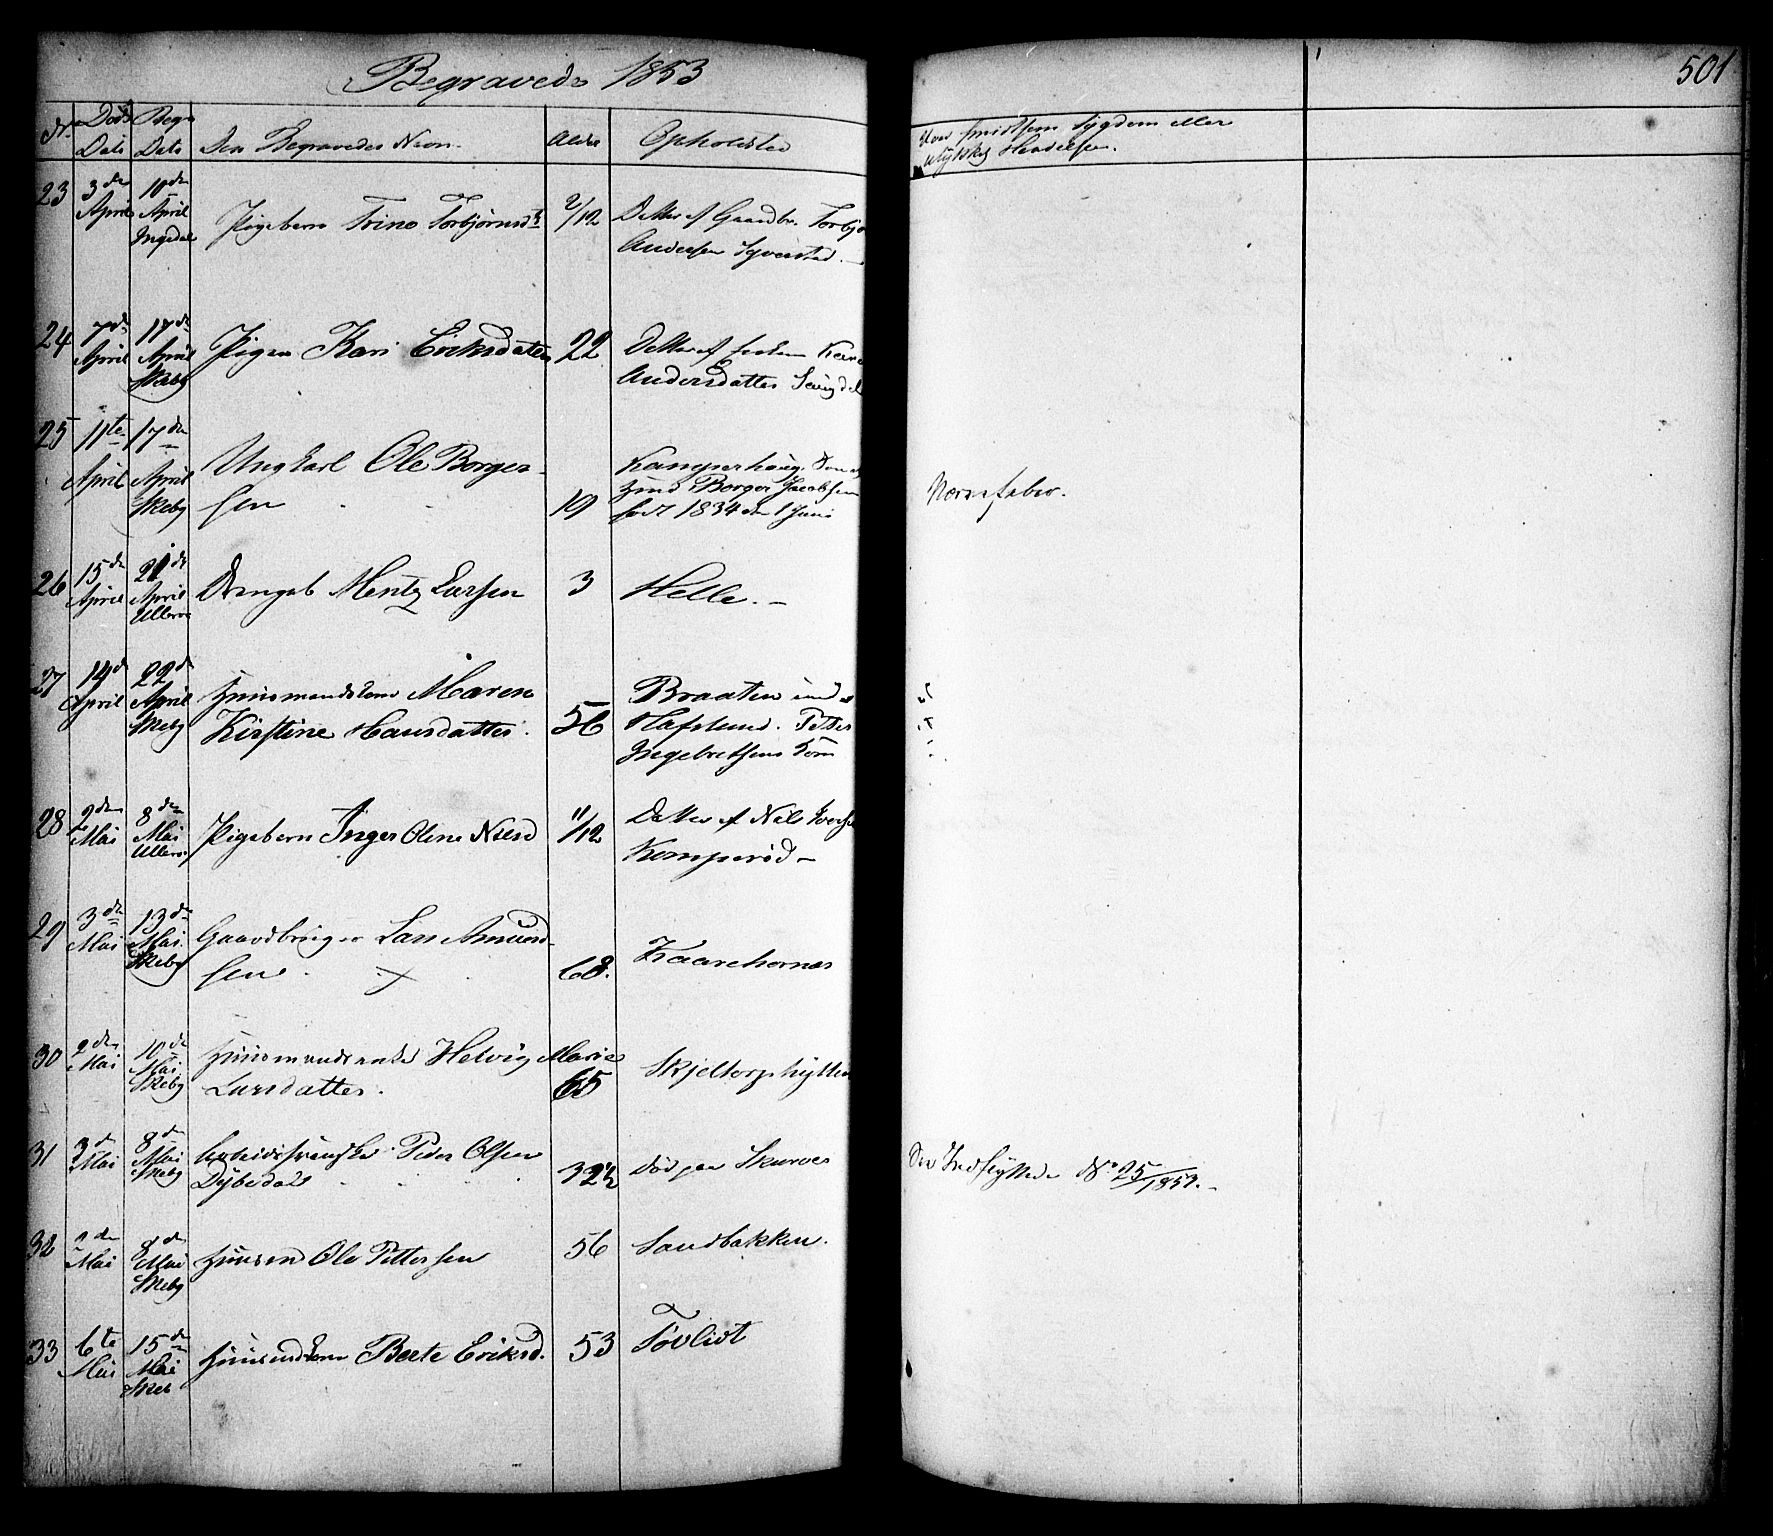 Begravede 1853
501
No. Døds Dato Begr. Dato Den Begravedes Navn. Alder Opholdsted
smitsom Sygdom eller
ulykkel Hændelse.
23 3de April 10de April Ingedal Pigebarn Trine Torbjørnsdt 2/12 Datter af Gaardbr. Torbjø
Andersen Syverstad. —
24 7de April 17de April Skeby Pigen Kari Eriksdatter 22 Datter af Kari
Andersdatter
25 11te April 17de April Skeby Ungkarl Ole Borger-
sen 19
Kamperhaug. Søn af
Huusmd Borger Jacobsen
født 1834 den 1 Juni
Nervefeber.
26 15de April 21de April Ullerø Drengeb Mentz Larsen 3 Helle. —
27 14de April 22de April Skeby Huusmandskone Maren
Kirstine Hansdatter. 56
Braaten under
Hafslund. Petter
Ingebretsens Kone
28 2den Mai 8de Mai Ullerø Pigebarn Inger Oline Nilsd 11/12 Datter af Nils Iversen
Komperød —
29 3de Mai 13de Mai Skeby Gaardbruger Lars Amund-
sen 68. Kaarehornes
30 2den Mai 10de Mai Skeby Huusmandsenke Helvig Marie
Larsdatter. 65 Skjeltorphytten
31 3de Mai 8de Mai Skeby Peder Olsen
Dybedal 32 1/2 død paa Skarves
See Indflyttede No. 25/1853. —
32 2den Mai 8de Mai Skeby Huusmd Ole Pettersen 56 Sandbakken.
33 6te Mai 15de Mai Skeb Huusmdkone Berte Eriksd. 53 Tøvlidt